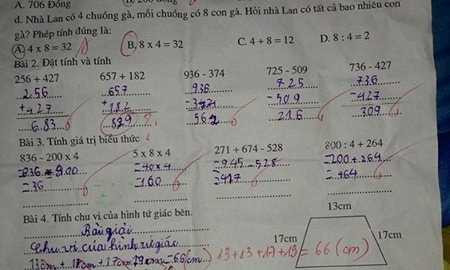 A. 706 Đồng
d. Nhà Lan có 4 chuồng gà, mỗi chuồng có 8 con gà. Hỏi nhà Lan có tất cả bao nhiêu con
gà? Phép tính đúng là:
A. 4 x 8 = 32 B. 8 x 4 = 32 C. 4 + 8 = 12 D. 8 : 4 = 2
Bài 2. Đặt tính và tính
256 + 427 657 + 182 936 - 374 725 - 509 736 - 427
256 657 936 725 736
+427 +182 509 427
683 562 216 309
Bài 3. Tính giá trị biểu thức
836 - 200 x 4 5 x 8 x 4 271 + 674 - 528 800 : 4 + 264
=40 x 4 =945 - 528 =200 + 264
=36 =160 =464
Bài 4. Tính chu vi của hình tứ giác bên.
Bài giải
Chu vi của hình tứ giác
13cm
17cm 17cm
13+13+17+19 = 66 (cm)